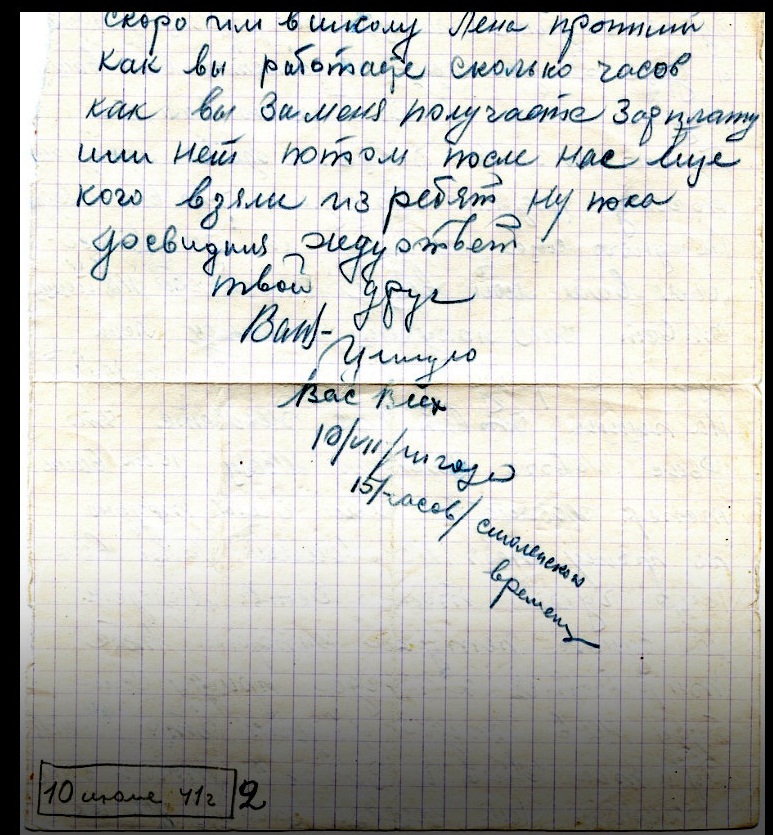 скоро им в школу Лена пропиши
как вы работаете сколько часов
как вы За меня получаете Зарплату
или нет потом после нас еще
кого взяли из ребят Ну пока
досвидния жду ответ
твой друг
Ваш-
Целую
Вас Всех
10/VII/
15/часов/ смоленской
времени
10 июля 41 г 2